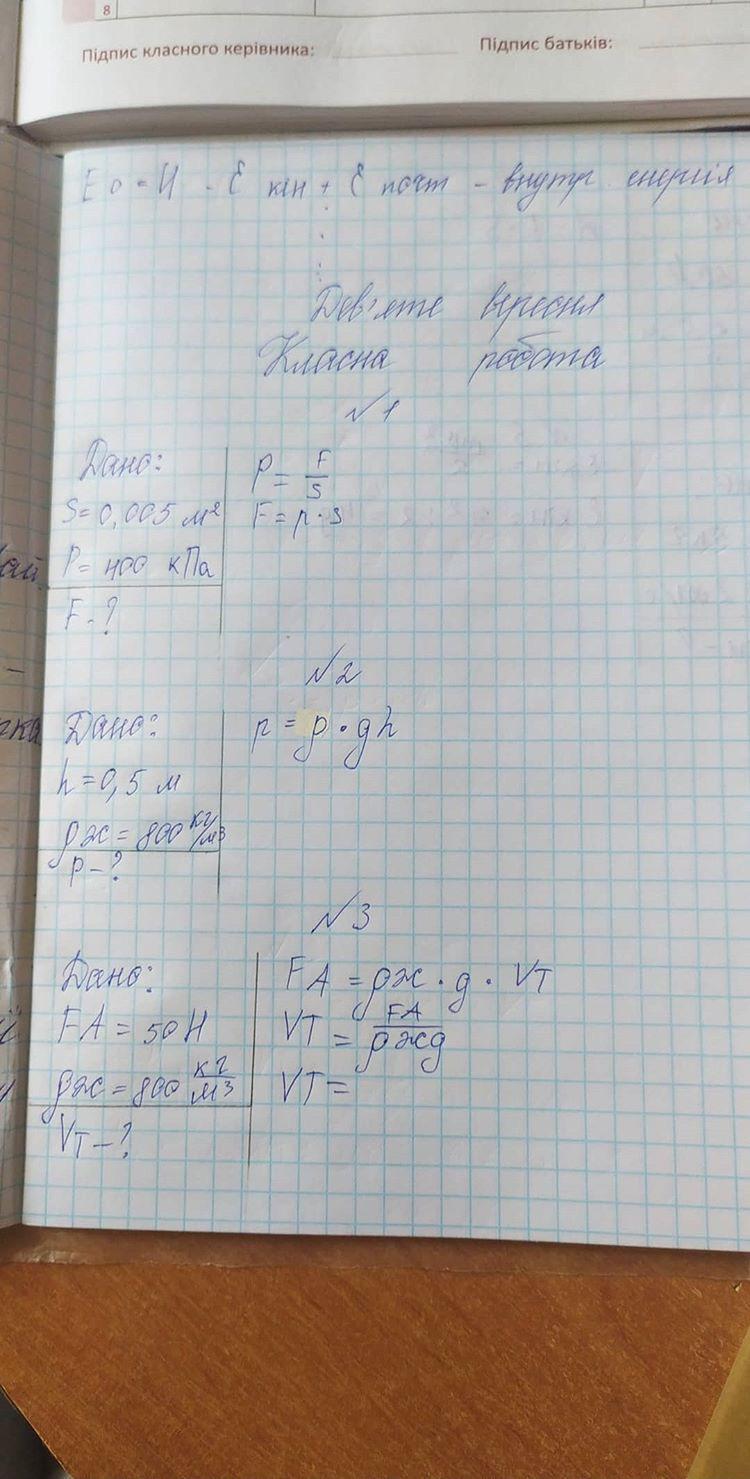 8
Підпис класного керівника:
Підпис батьків:
E о = U - E кін + E пот - внутр енергія
Дев'яте вересня
Класна робота
№1
Дано:
S = 0,005 м²
P = 400 кПа
F - ?
P = F/S
F = p · s
№2
Дано:
h = 0,5 м
ρж = 800 кг/м3
p - ?
p = ρ · gh
№3
Дано:
FA = 50 Н
ρж = 800 кг/м3
VT - ?
FA = ρж · g · VT
VT = FA/ρжg
VT =